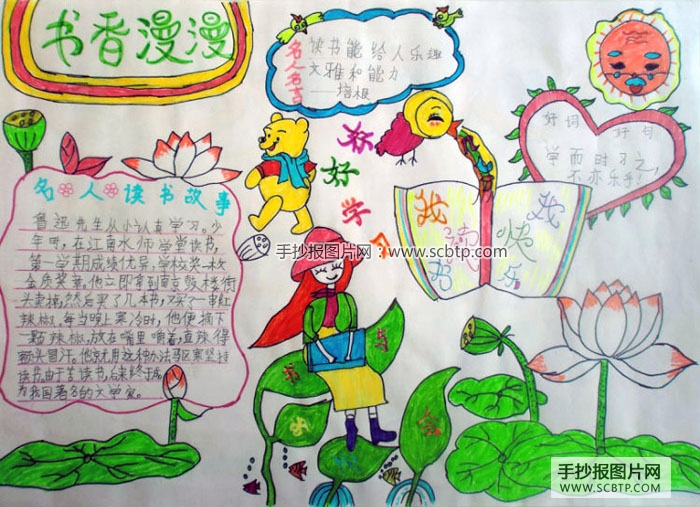 书香漫漫
名人名言
读书能给人乐趣
文雅和能力
——培根
好词 好句
学而时习之,
不亦乐乎!
好好学习
我书
我快乐
名人读书故事
鲁迅先生从小认真学习。少
年时,在江南水师学堂读书,
第一学期成绩优异,学校奖一枚
金质奖章,他立即拿到南京鼓楼街
头卖掉,然后买了几本书,又买了一串红
辣椒,每当晚上寒冷时,他便摘下
一颗辣椒,放在嘴里嚼着,直辣得
额头冒汗。他就用这种办法驱寒坚持
读书,由于苦读书,后来终于成
为我国著名的文学家。
手抄报图片网 www.scbtp.com
手抄报图片网
WWW.SCBTP.COM